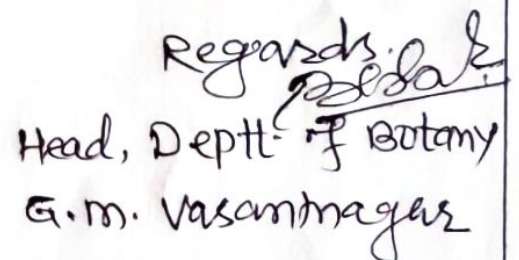 Regards.
Head, Deptt. of Botany
G.M. Vasantnagar